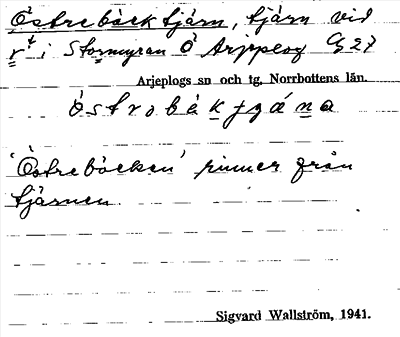 Östrebäcktjärn, tjärn vid
r† i Stormyran Ö Arjeplog G 27
Arjeplogs sn och tg, Norrbottens län.
'Östrebäcken' rinner från
tjärnen.
Sigvard Wallström, 1941.